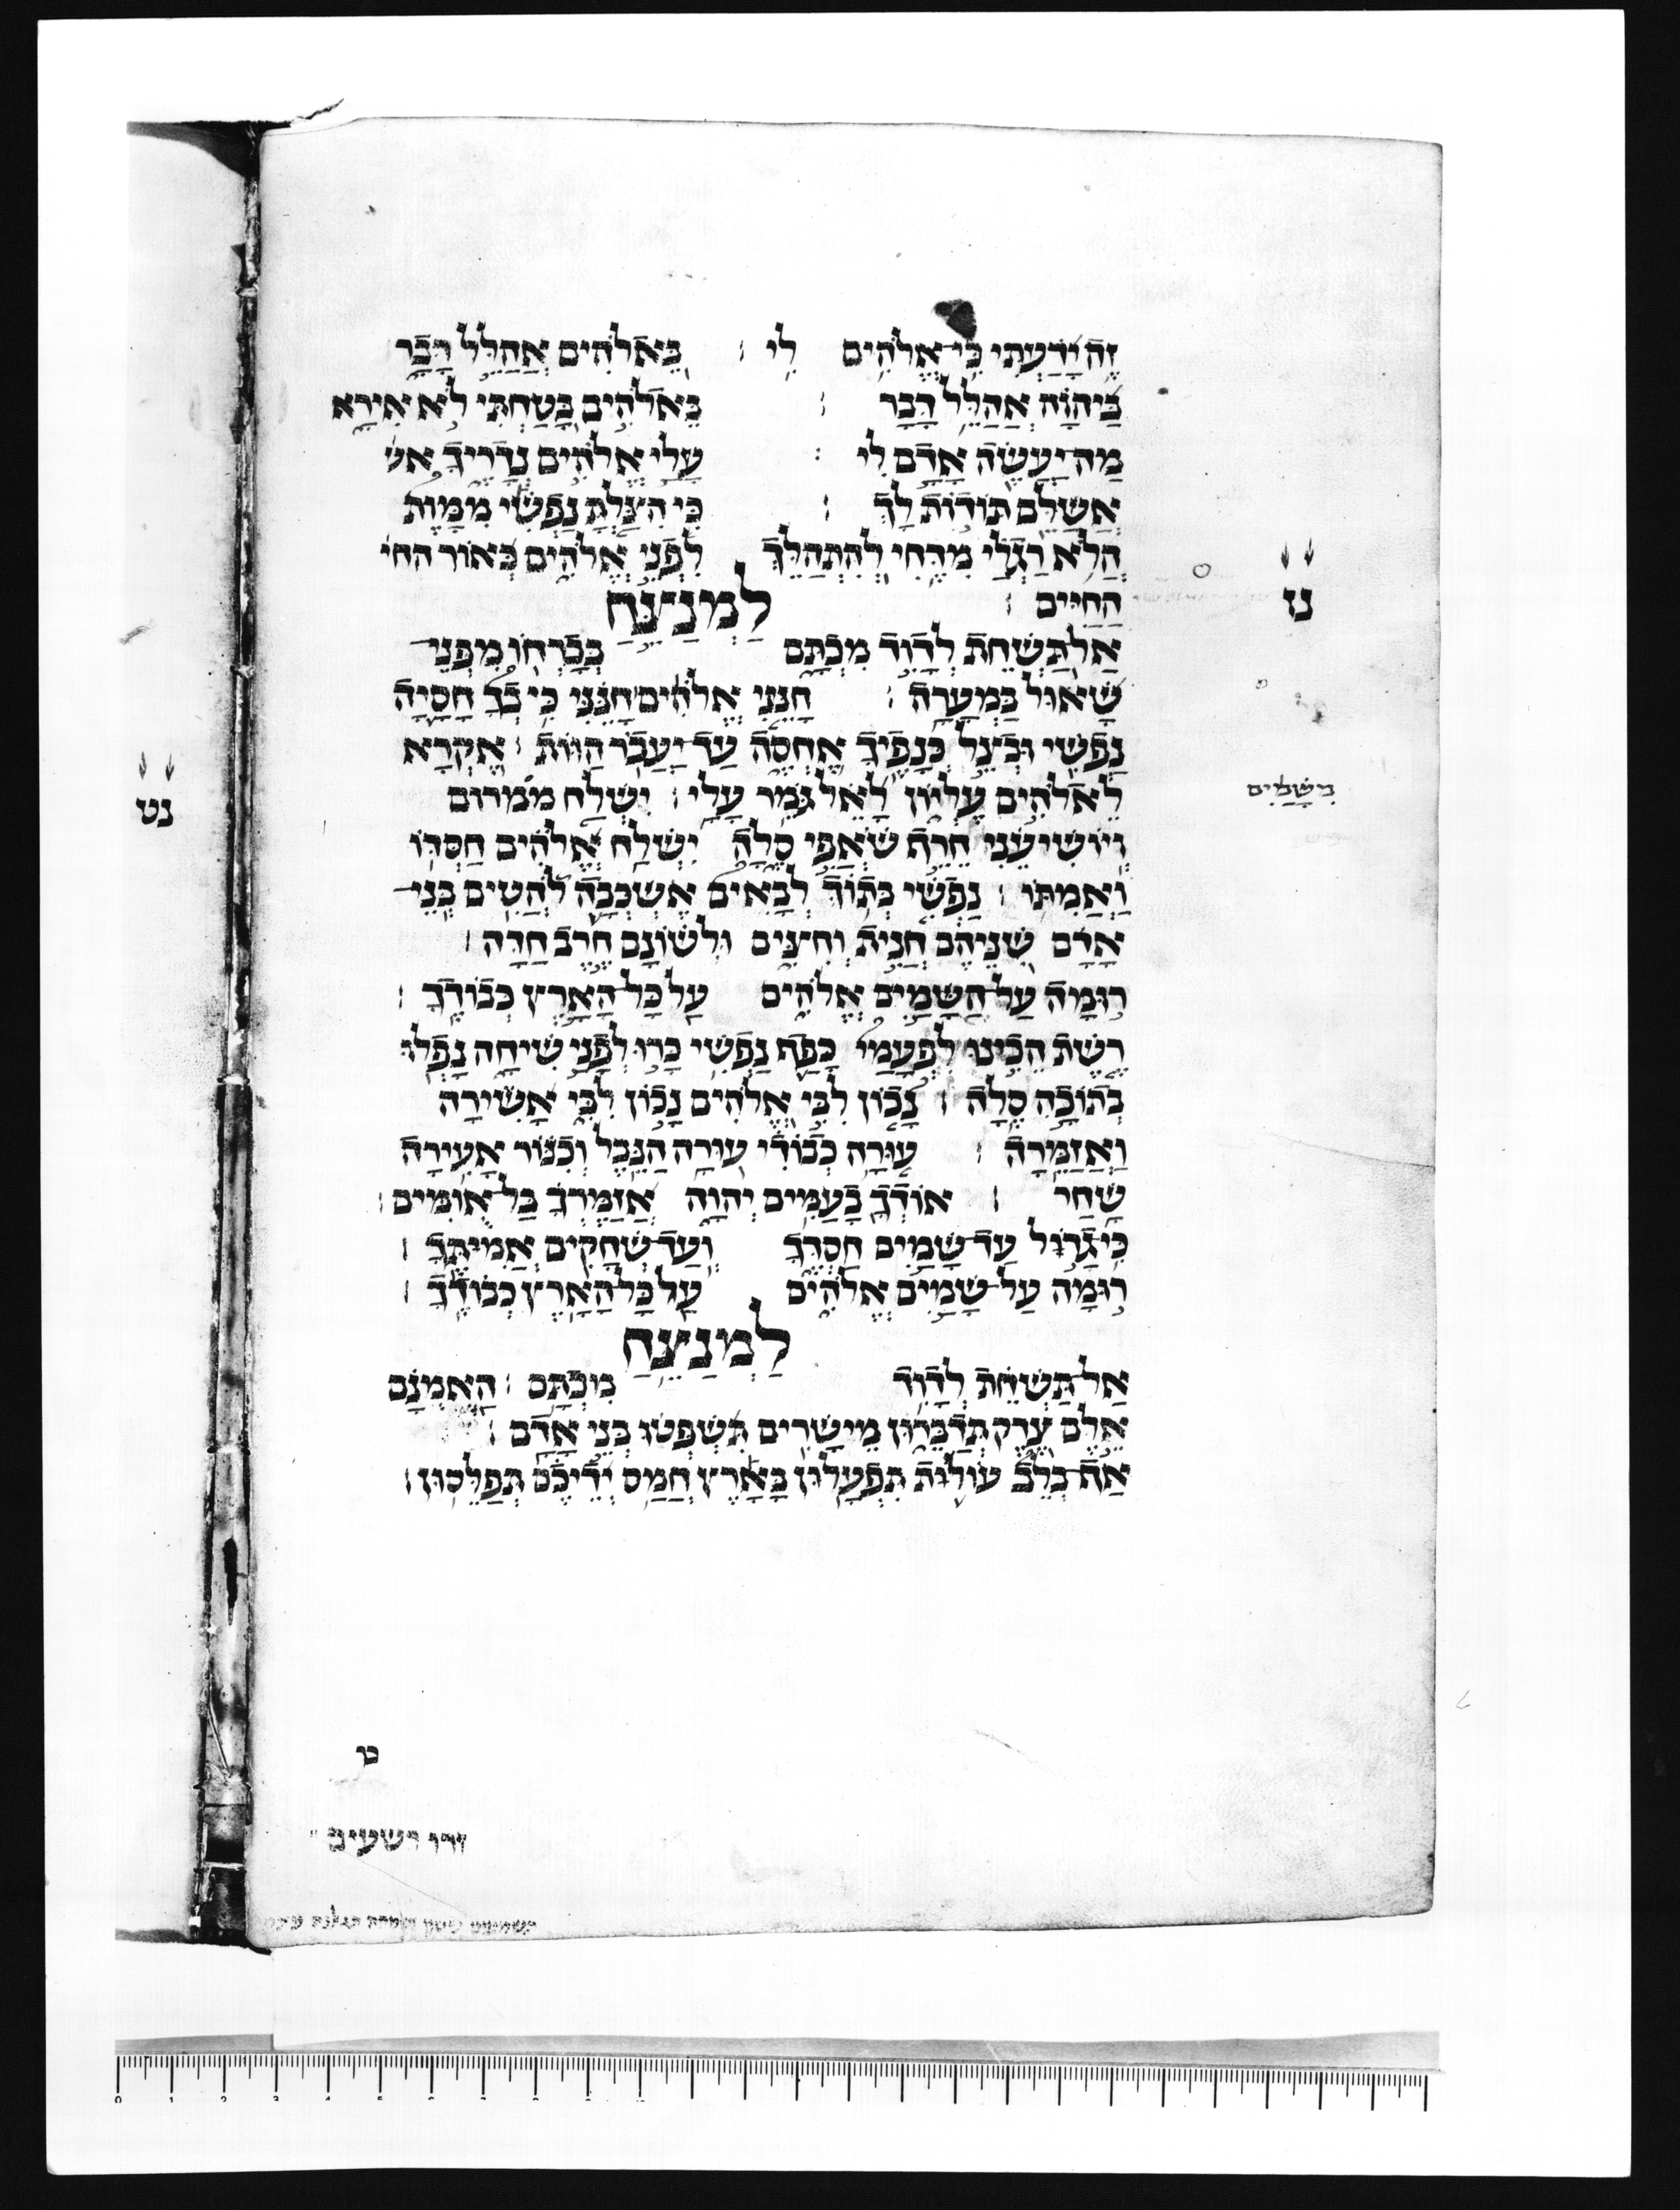 זֶה יָדַעְתִּי כִּי אֱלֹהִים לִי ׃ בֵּאלֹהִים אֲהַלֵּל דָּבָר
בַּיהוָה אֲהַלֵּל דָּבָר ׃ בֵּאלֹהִים בָּטַחְתִּי לֹא אִירָא
מַה יַּעֲשֶׂה אָדָם לִי ׃ עָלַי אֱלֹהִים נְדָרֶיךָ אש
אֲשַׁלֵּם תּוֹדוֹת לָךְ ׃ כִּי הִצַּלְתָּ נַפְשִׁי מִמָּוֶת
הֲלֹא רַגְלַי מִדֶּחִי לְהִתְהַלֵּךְ לִפְנֵי אֱלֹהִים בְּאוֹר החי
הַחַיִּים ׃ לַמְנַצֵּחַ
אַל תַּשְׁחֵת לְדָוִד מִכְתָּם בְּבָרְחוֹ מִפְּנֵי
שָׁאוּל בַּמְּעָרָה ׃ חָנֵּנִי אֱלֹהִים חָנֵּנִי כִּי בְךָ חָסָיָה
נַפְשִׁי וּבְצֵל כְּנָפֶיךָ אֶחְסֶה עַד יַעֲבֹר הַוּוֹת ׃ אֶקְרָא
לֵאלֹהִים עֶלְיוֹן לָאֵל גֹּמֵר עָלָי ׃ יִשְׁלַח ממרום
וְיוֹשִׁיעֵנִי חֵרֵף שֹׁאֲפִי סֶלָה יִשְׁלַח אֱלֹהִים חַסְדּוֹ
וַאֲמִתּוֹ ׃ נַפְשִׁי בְּתוֹךְ לְבָאִים אֶשְׁכְּבָה לֹהֲטִים בְּנֵי
אָדָם שִׁנֵּיהֶם חֲנִית וְחִצִּים וּלְשׁוֹנָם חֶרֶב חַדָּה ׃
רוּמָה עַל הַשָּׁמַיִם אֱלֹהִים עַל כָּל הָאָרֶץ כְּבוֹדֶךָ ׃
רֶשֶׁת הֵכִינוּ לִפְעָמַי כָּפַף נַפְשִׁי כָּרוּ לְפָנַי שִׁיחָה נָפְלוּ
בְתוֹכָהּ סֶלָה ׃ נָכוֹן לִבִּי אֱלֹהִים נָכוֹן לִבִּי אָשִׁירָה
וַאֲזַמֵּרָה ׃ עוּרָה כְבוֹדִי עוּרָה הַנֵּבֶל וְכִנּוֹר אָעִירָה
שָּׁחַר ׃ אוֹדְךָ בָעַמִּים יְהוָה אֲזַמֶּרְךָ בַּל אֻומִּים ׃
כִּי גָדוֹל עַד שָׁמַיִם חַסְדֶּךָ וְעַד שְׁחָקִים אֲמִיתֶּךָ ׃
רוּמָה עַל שָׁמַיִם אֱלֹהִים עַל כָּל הָאָרֶץ כְּבוֹדֶךָ ׃
לַמְנַצֵּחַ
אַל תַּשְׁחֵת לְדָוִד מִכְתָּם ׃ הַאֻמְנָם
אֵלֶם צֶדֶק תְּדַבֵּרוּן מֵישָׁרִים תִּשְׁפְּטוּ בְּנֵי אָדָם ׃
אַף בְּלֵב עוֹלֹת תִּפְעָלוּן בָּאָרֶץ חֲמַס יְדֵיכֶם תְּפַלֵּסוּן ׃
נז
נט
ט
זרו רשעים